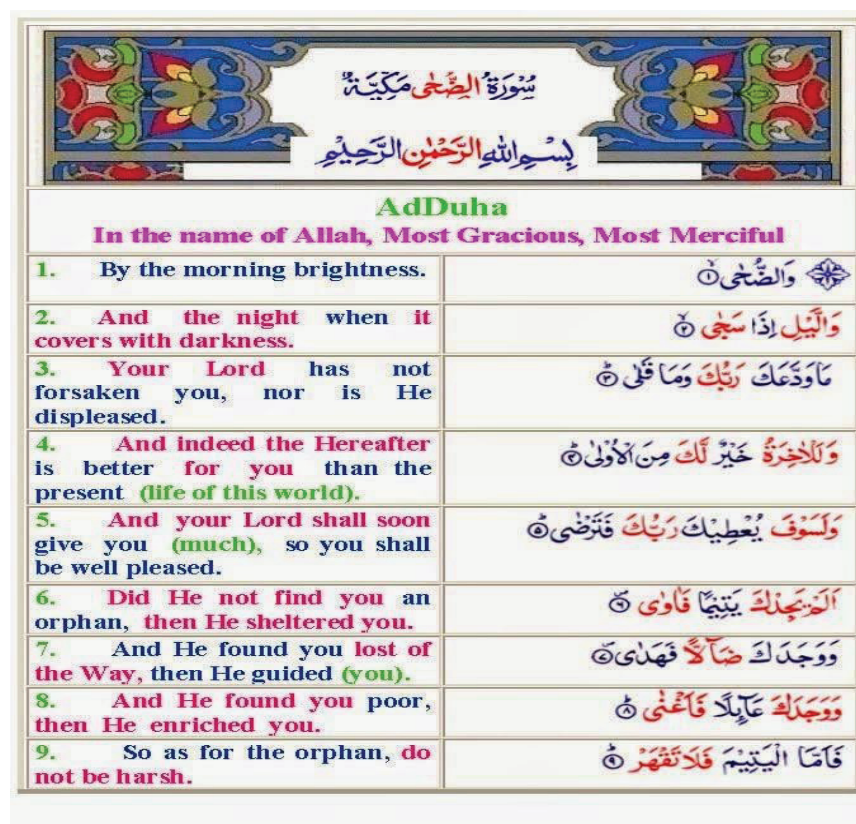 سُوۡرَةُ الضُّحٰى مَكِّيَّةٌ
بِسۡمِ اللّٰهِ الرَّحۡمٰنِ الرَّحِيۡمِ
AdDuha
In the name of Allah, Most Gracious, Most Merciful
1. By the morning brightness.
وَالضُّحٰىۙ‏ ﴿۱﴾
2. And the night when it
covers with darkness.
وَالَّيۡلِ اِذَا سَجٰىۙ‏ ﴿۲﴾
3. Your Lord has not
forsaken you, nor is He
displeased.
مَا وَدَّعَكَ رَبُّكَ وَمَا قَلٰىؕ‏ ﴿۳﴾
4. And indeed the Hereafter
is better for you than the
present (life of this world).
وَلَلۡاٰخِرَةُ خَيۡرٌ لَّكَ مِنَ الۡاُوۡلٰىؕ‏ ﴿۴﴾
5. And your Lord shall soon
give you (much), so you shall
be well pleased.
وَلَسَوۡفَ يُعۡطِيۡكَ رَبُّكَ فَتَرۡضٰىؕ‏ ﴿۵﴾
6. Did He not find you an
orphan, then He sheltered you.
اَلَمۡ يَجِدۡكَ يَتِيۡمًا فَاٰوٰى ﴿۶﴾
7. And He found you lost of
the Way, then He guided (you).
وَوَجَدَكَ ضَآلًّا فَهَدٰى ﴿۷﴾
8. And He found you poor,
then He enriched you.
وَوَجَدَكَ عَآٮِٕلًا فَاَغۡنٰىؕ‏ ﴿۸﴾
9. So as for the orphan, do
not be harsh.
فَاَمَّا الۡيَتِيۡمَ فَلَا تَقۡهَرۡؕ‏ ﴿۹﴾